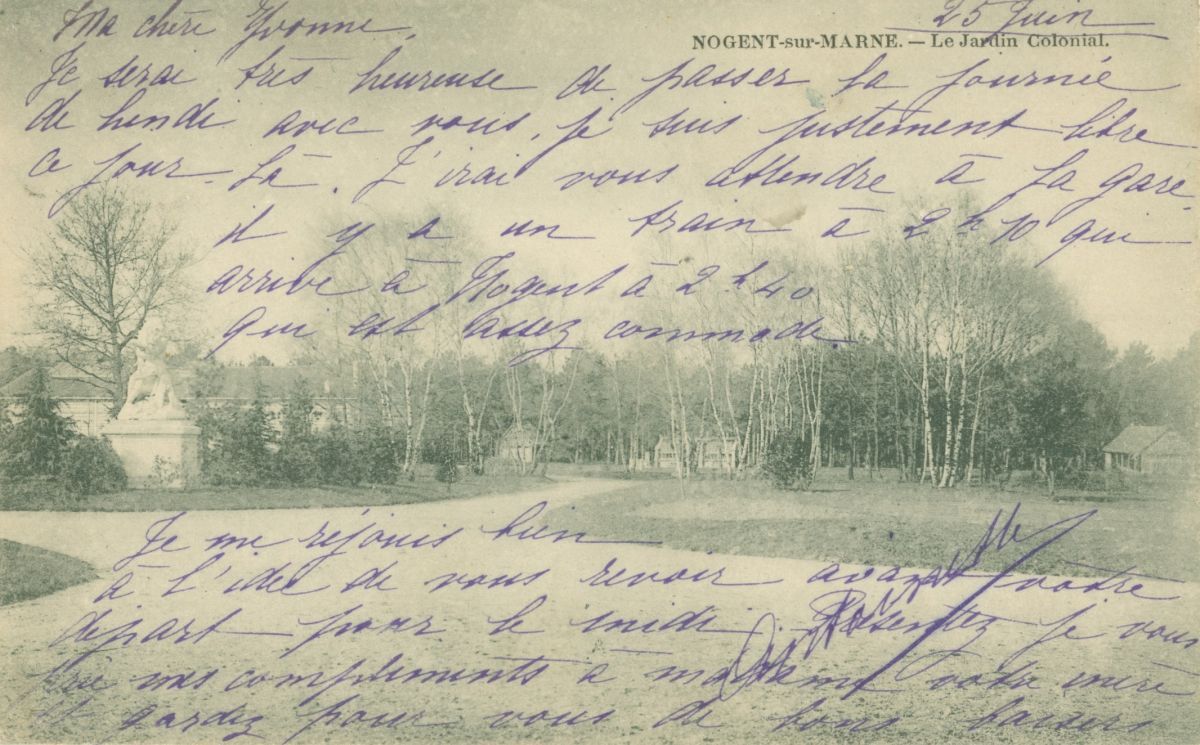 Ma chère Yvonne,
25 Juin
NOGENT-sur-MARNE. — Le Jardin Colonial.
Je serai très heureuse de passer la journée
de lundi avec vous, je suis justement libre
ce jour-là. J'irai vous attendre à la gare.
il y a un train à 2h 10 qui
arrive à Nogent à 2h 40
qui est assez commode.
Je me réjouis bien
à l'idée de vous revoir avant votre
départ pour le midi. Présentez je vous
prie mes compliments à madame votre mère
et gardez pour vous de bons baisers